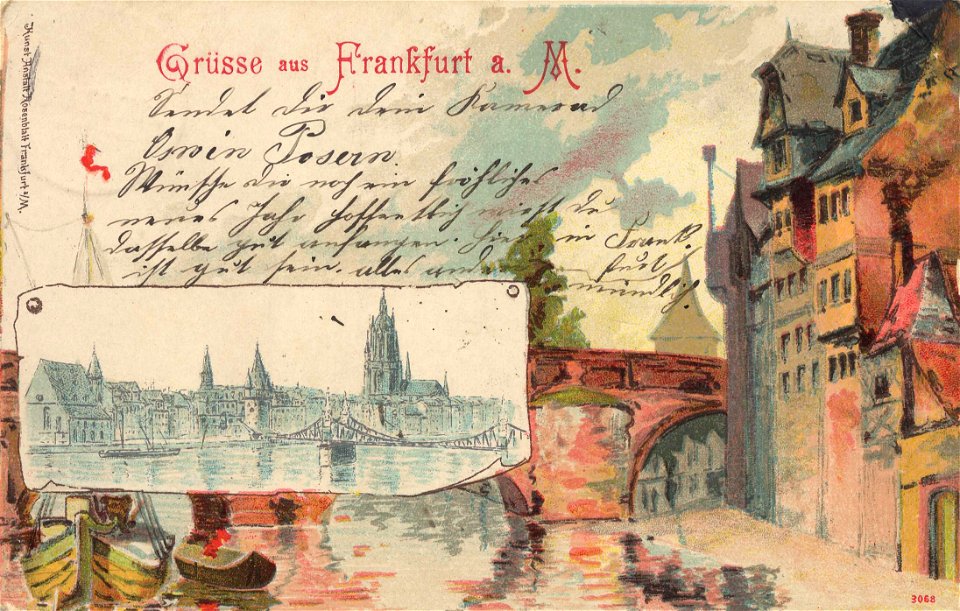 Kunst Anstalt Rosenblatt Frankfurt a/M.
Grüsse aus Frankfurt a. M.
Sendet Dir dein Kamerad
Oswin Posern.
Wünsche Dir noch ein fröhliches
neues Jahr hoffentlich wirst du
dasselbe gut anfangen. Hier in Frank.
ist gut sein. alles andere furt
mündlich.
3068